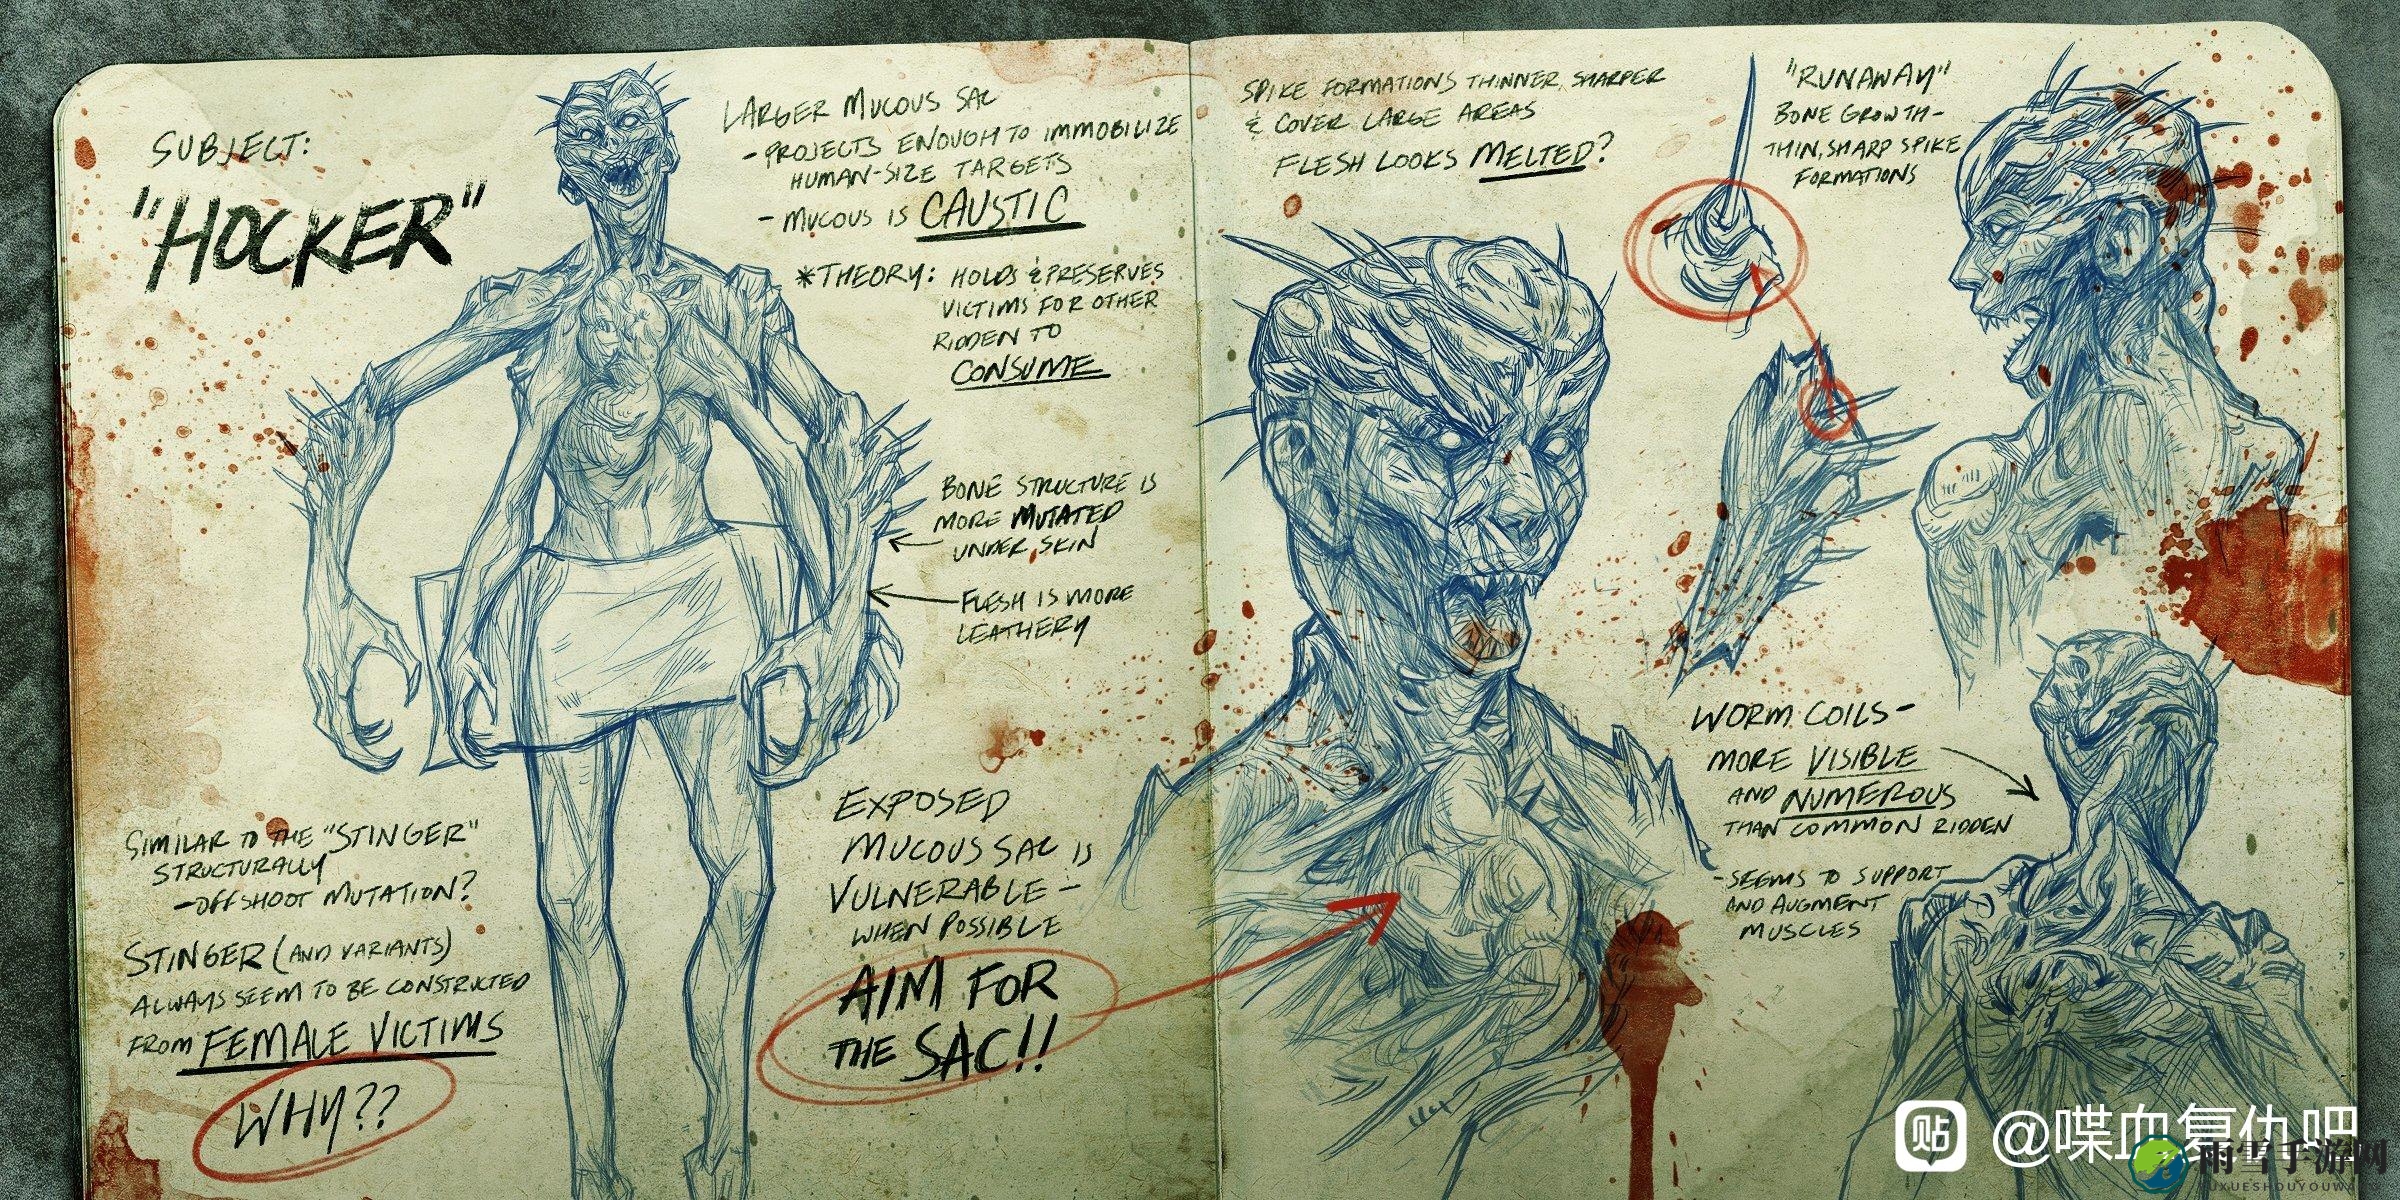 SUBJECT:
"HOCKER"
LARGER MUCOUS SAC
- PROJECTS ENOUGH TO IMMOBILIZE
HUMAN-SIZE TARGETS
- MUCOUS IS CAUSTIC
*THEORY: HOLDS & PRESERVES
VICTIMS FOR OTHER
RIDDEN TO
CONSUME
BONE STRUCTURE IS
MORE MUTATED
UNDER SKIN
FLESH IS MORE
LEATHERY
SIMILAR TO THE "STINGER"
STRUCTURALLY
- OFFSHOOT MUTATION?
STINGER (AND VARIANTS)
ALWAYS SEEM TO BE CONSTRUCTED
FROM FEMALE VICTIMS
WHY??
EXPOSED
MUCOUS SAC IS
VULNERABLE -
WHEN POSSIBLE
AIM FOR
THE SAC!!
SPIKE FORMATIONS THINNER, SHARPER
& COVER LARGE AREAS
FLESH LOOKS MELTED?
"RUNAWAY"
BONE GROWTH -
THIN, SHARP SPIKE
FORMATIONS
WORM COILS -
MORE VISIBLE
AND NUMEROUS
THAN COMMON RIDDEN
- SEEMS TO SUPPORT
AND AUGMENT
MUSCLES
贴 @喋血复仇吧
雨雪手游网